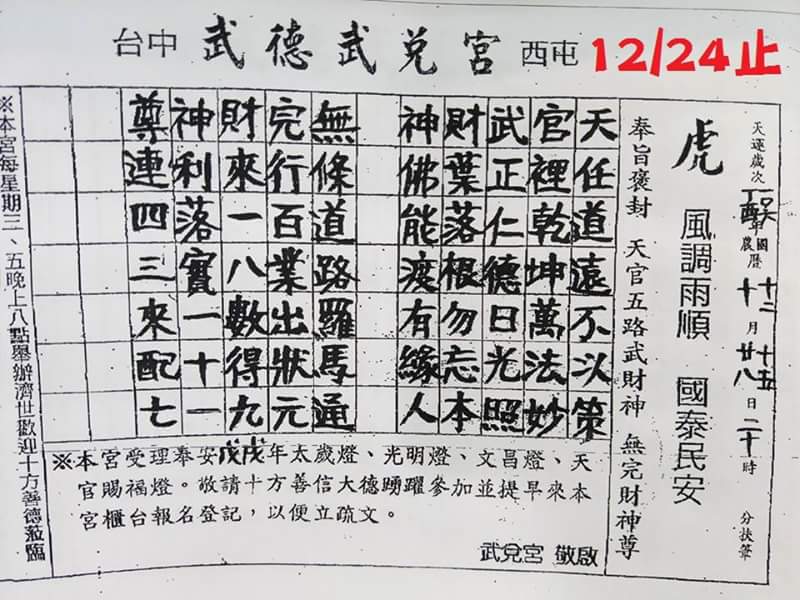 台中 武德武兌宮 西屯 12/24止
天運歲次
年
國
農 曆
十二 十 月 十五 廿八 日 二十 時 分扶筆
虎 風調雨順 國泰民安
奉旨褒封 天官五路武財神 無完財神尊
天任道遠不以策
官裡乾坤萬法妙
武正仁德日光照
財葉落根勿忘本
神佛能渡有緣人
無條道路羅馬通
完行百業出狀元
財來一八數得九
神利落實一十一
尊連四三來配七
※本宮受理奉安戊戌年太歲燈、光明燈、文昌燈、天
官賜福燈。敬請十方善信大德踴躍參加並提早來本
宮櫃台報名登記,以便立疏文。
武兌宮 敬啟
※本宮每星期三、五晚上八點舉辦濟世歡迎十方善德蒞臨